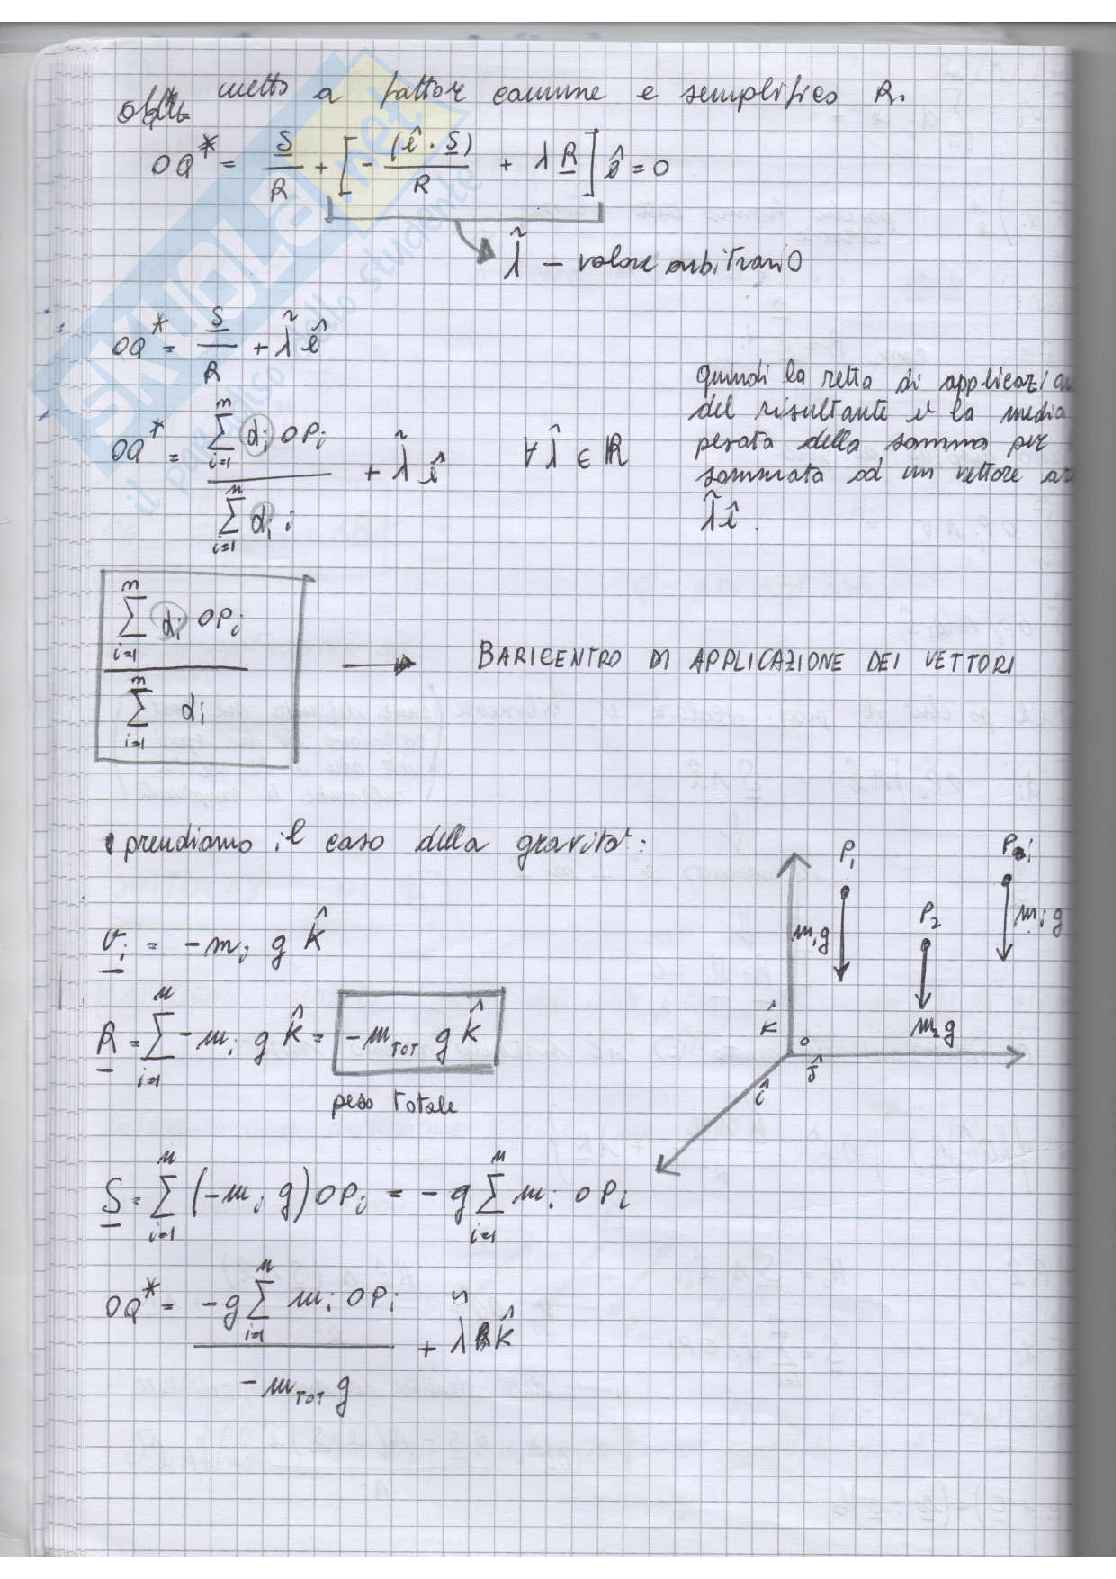 metto a fattor comune e semplifico R.
OQ* = S/R + [ - (ê · S)/R + λ R ] ê = 0
λ̃ - valore arbitrario
OQ* = S/R + λ̃ ê
OQ* = (∑_{i=1}^{n} d_i OP_i) / (∑_{i=1}^{n} d_i i) + λ̃ ê   ∀ λ̂ ∈ R
quindi la retta di applicazi
del risultante è la media
pesata della somma per
sommata ad un vettore
λ̃ ê.
(∑_{i=1}^{n} d_i OP_i) / (∑_{i=1}^{n} d_i) → BARICENTRO DI APPLICAZIONE DEI VETTORI
prendiamo il caso della gravità:
v_i = -m_i g k̂
R = ∑_{i=1}^{n} -m_i g k̂ = -m_TOT g k̂
peso totale
P_1
m_1 g
P_2
m_2 g
P_i
m_i g
k̂
o
ĵ
î
S = ∑_{i=1}^{n} (-m_i g) OP_i = -g ∑_{i=1}^{n} m_i OP_i
OQ* = (-g ∑_{i=1}^{n} m_i OP_i) / (-m_TOT g) + λ̃ k̂
SKUOLA.net
il paradiso dello studente